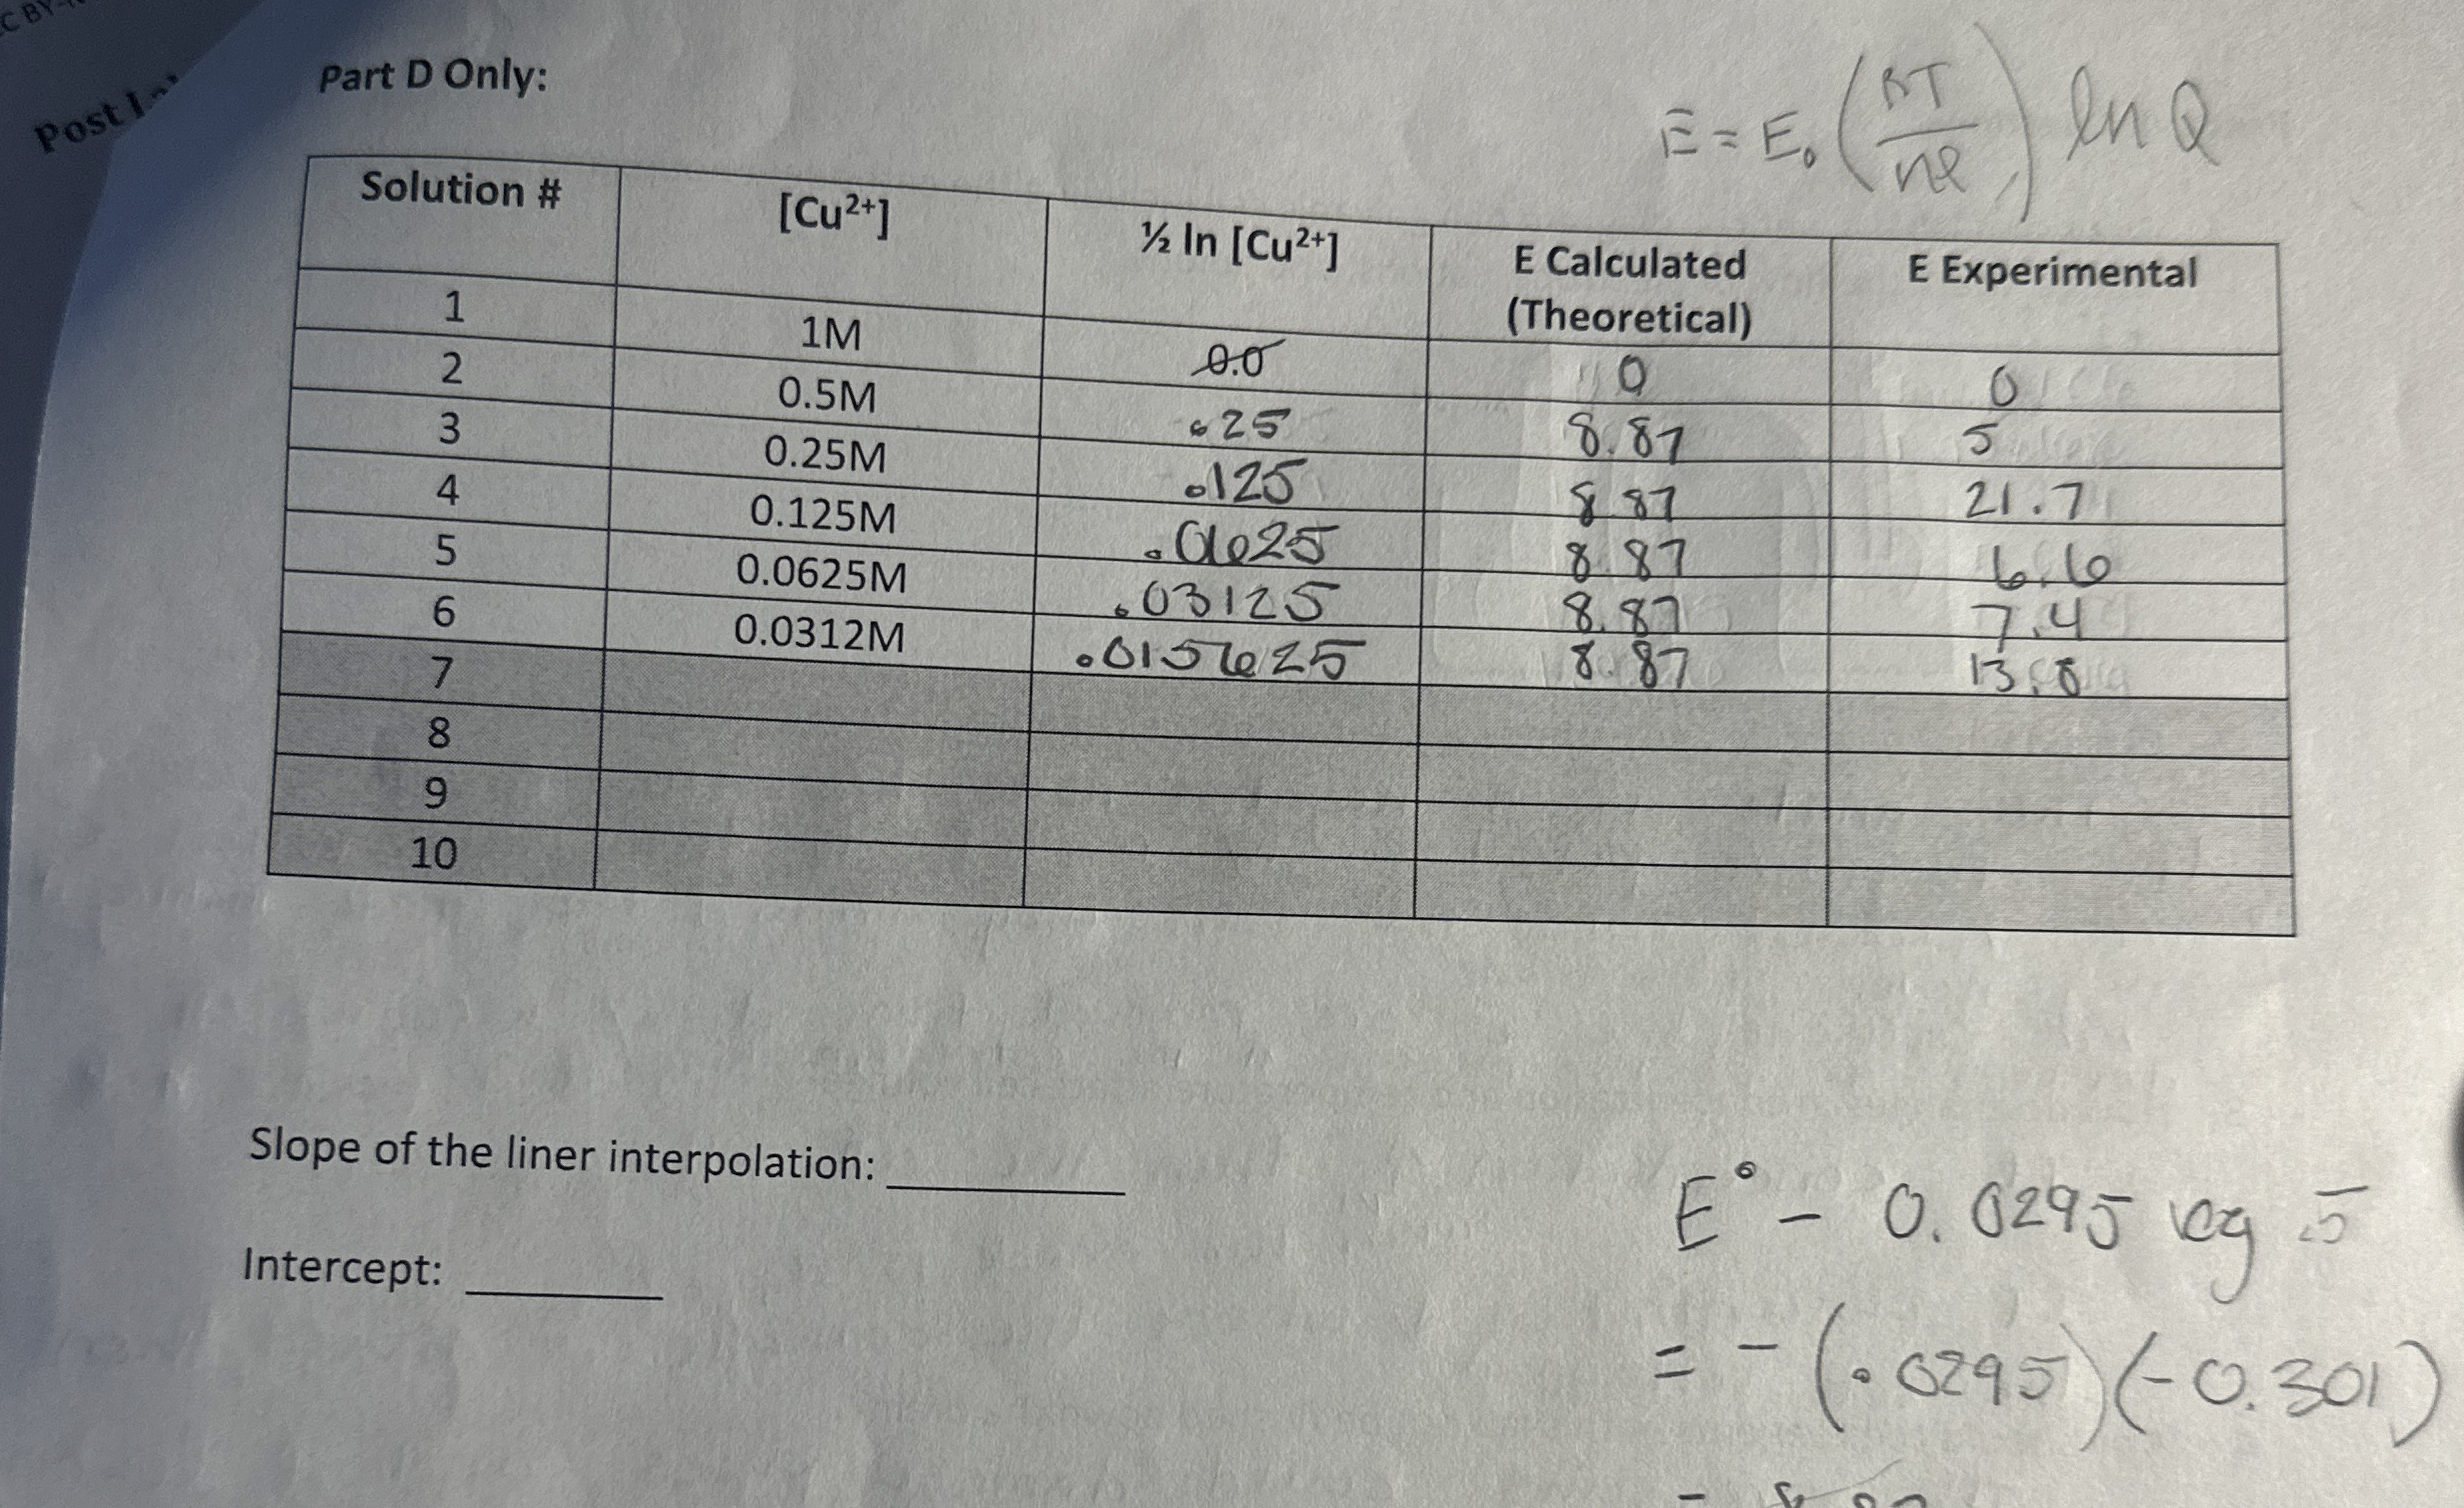 C BY-
Post L
Part D Only:
E = E₀ (RT/nF) ln Q
Solution # [Cu²⁺] ½ ln [Cu²⁺] E Calculated (Theoretical) E Experimental
1 1M 0.0 0 0
2 0.5M .25 8.87 5
3 0.25M .125 8.87 21.7
4 0.125M .0625 8.87 6.6
5 0.0625M .03125 8.87 7.4
6 0.0312M .015625 8.87 13.8
7
8
9
10
Slope of the liner interpolation: ________
Intercept: ________
E° - 0.0295 log .5
= - (.0295)(-0.301)